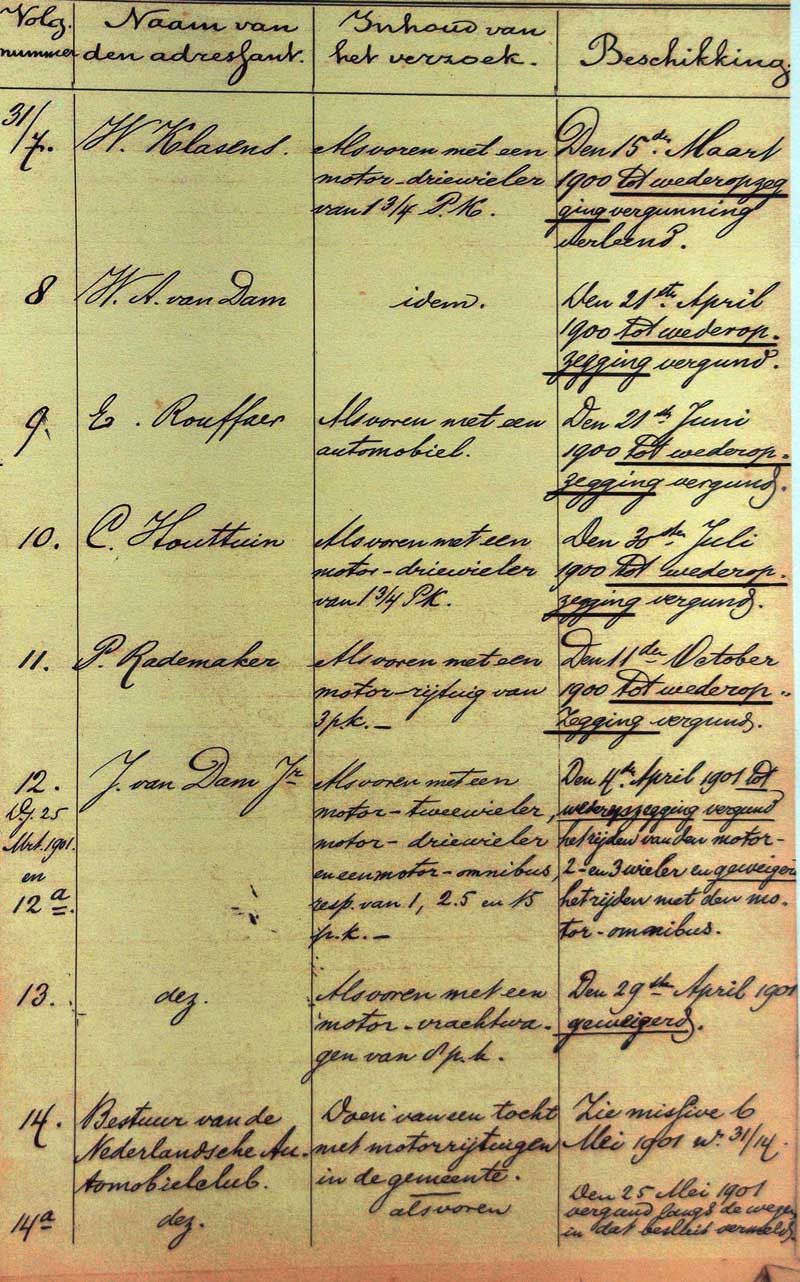 Volg. nummer
Naam van den adressant.
Inhoud van het verzoek.
Beschikking.
31/7.
W. Klasens.
Alsvoren met een
motor-driewieler
van 1 3/4 P.K.
Den 15de Maart
1900 tot wederopzeg
ging vergunning
verleend.
8
W. A. van Dam
idem.
Den 21ste April
1900 tot wederop-
zegging vergund.
9.
E. Rouffaer
Alsvoren met een
automobiel.
Den 21ste Juni
1900 tot wederop-
zegging vergund.
10.
C. Houttuin
Alsvoren met een
motor-driewieler
van 1 3/4 PK.
Den 30ste Juli
1900 tot wederop-
zegging vergund.
11.
P. Rademaker
Alsvoren met een
motor-rijtuig van
3 p.k. —
Den 11den October
1900 tot wederop-
zegging vergund.
12.
25
Mrt. 1901.
en
12a.
J. van Dam Jr
Alsvoren met een
motor-tweewieler,
motor-driewieler
en een motor-omnibus,
resp. van 1, 2.5 en 15
p.k. —
Den 4de April 1901 tot
wederopzegging vergund
het rijden van den motor-
2- en 3 wieler en geweigerd
het rijden met den mo-
tor-omnibus.
13.
dez.
Alsvoren met een
motor-vrachtwa-
gen van 8 p.k.
Den 29ste April 1901
geweigerd.
14.
Bestuur van de
Nederlandsche Au-
tomobielclub.
Doen van een tocht
met motorrijtuigen
in de gemeente.
Zie missive 6
Mei 1901 nr. 31/14.
14a
dez.
alsvoren
Den 25 Mei 1901
vergund langs de wegen
in dat besluit vermeld.